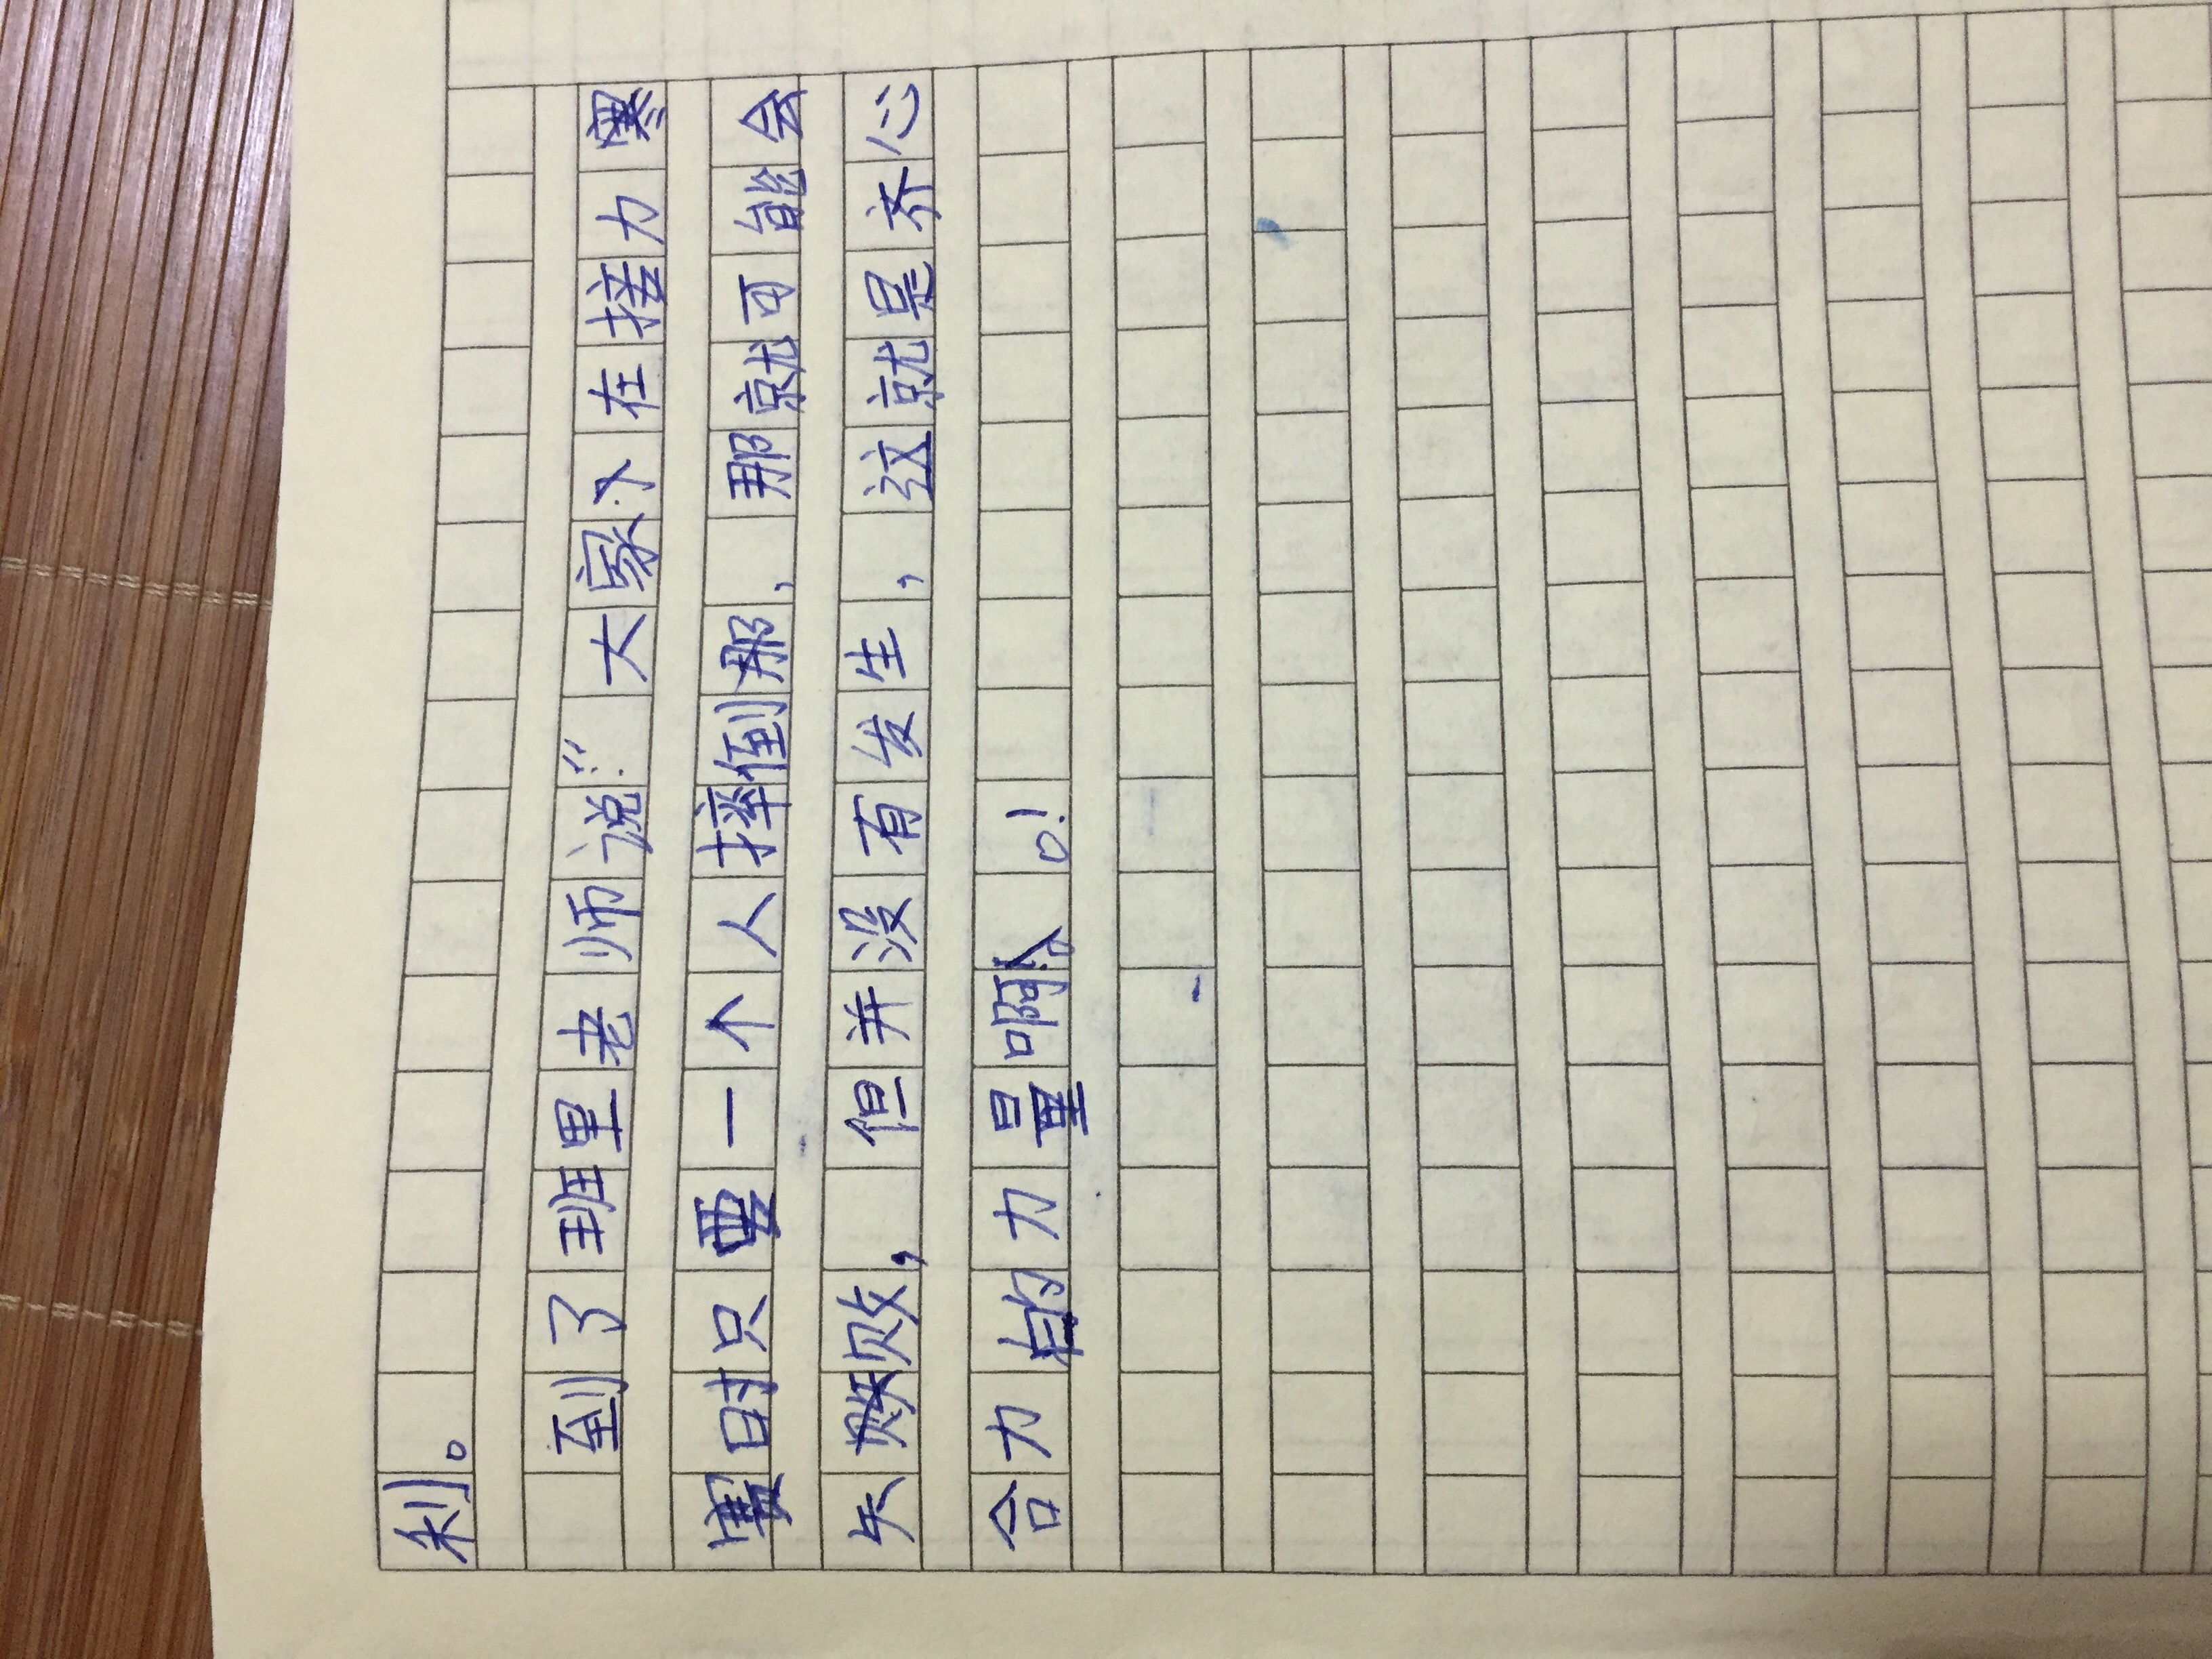 利。
到了班里老师说:“大家在接力
赛时只要一个人摔倒那,那就可能会
失败,但并没有发生,这就是齐心
合力的力量啊!